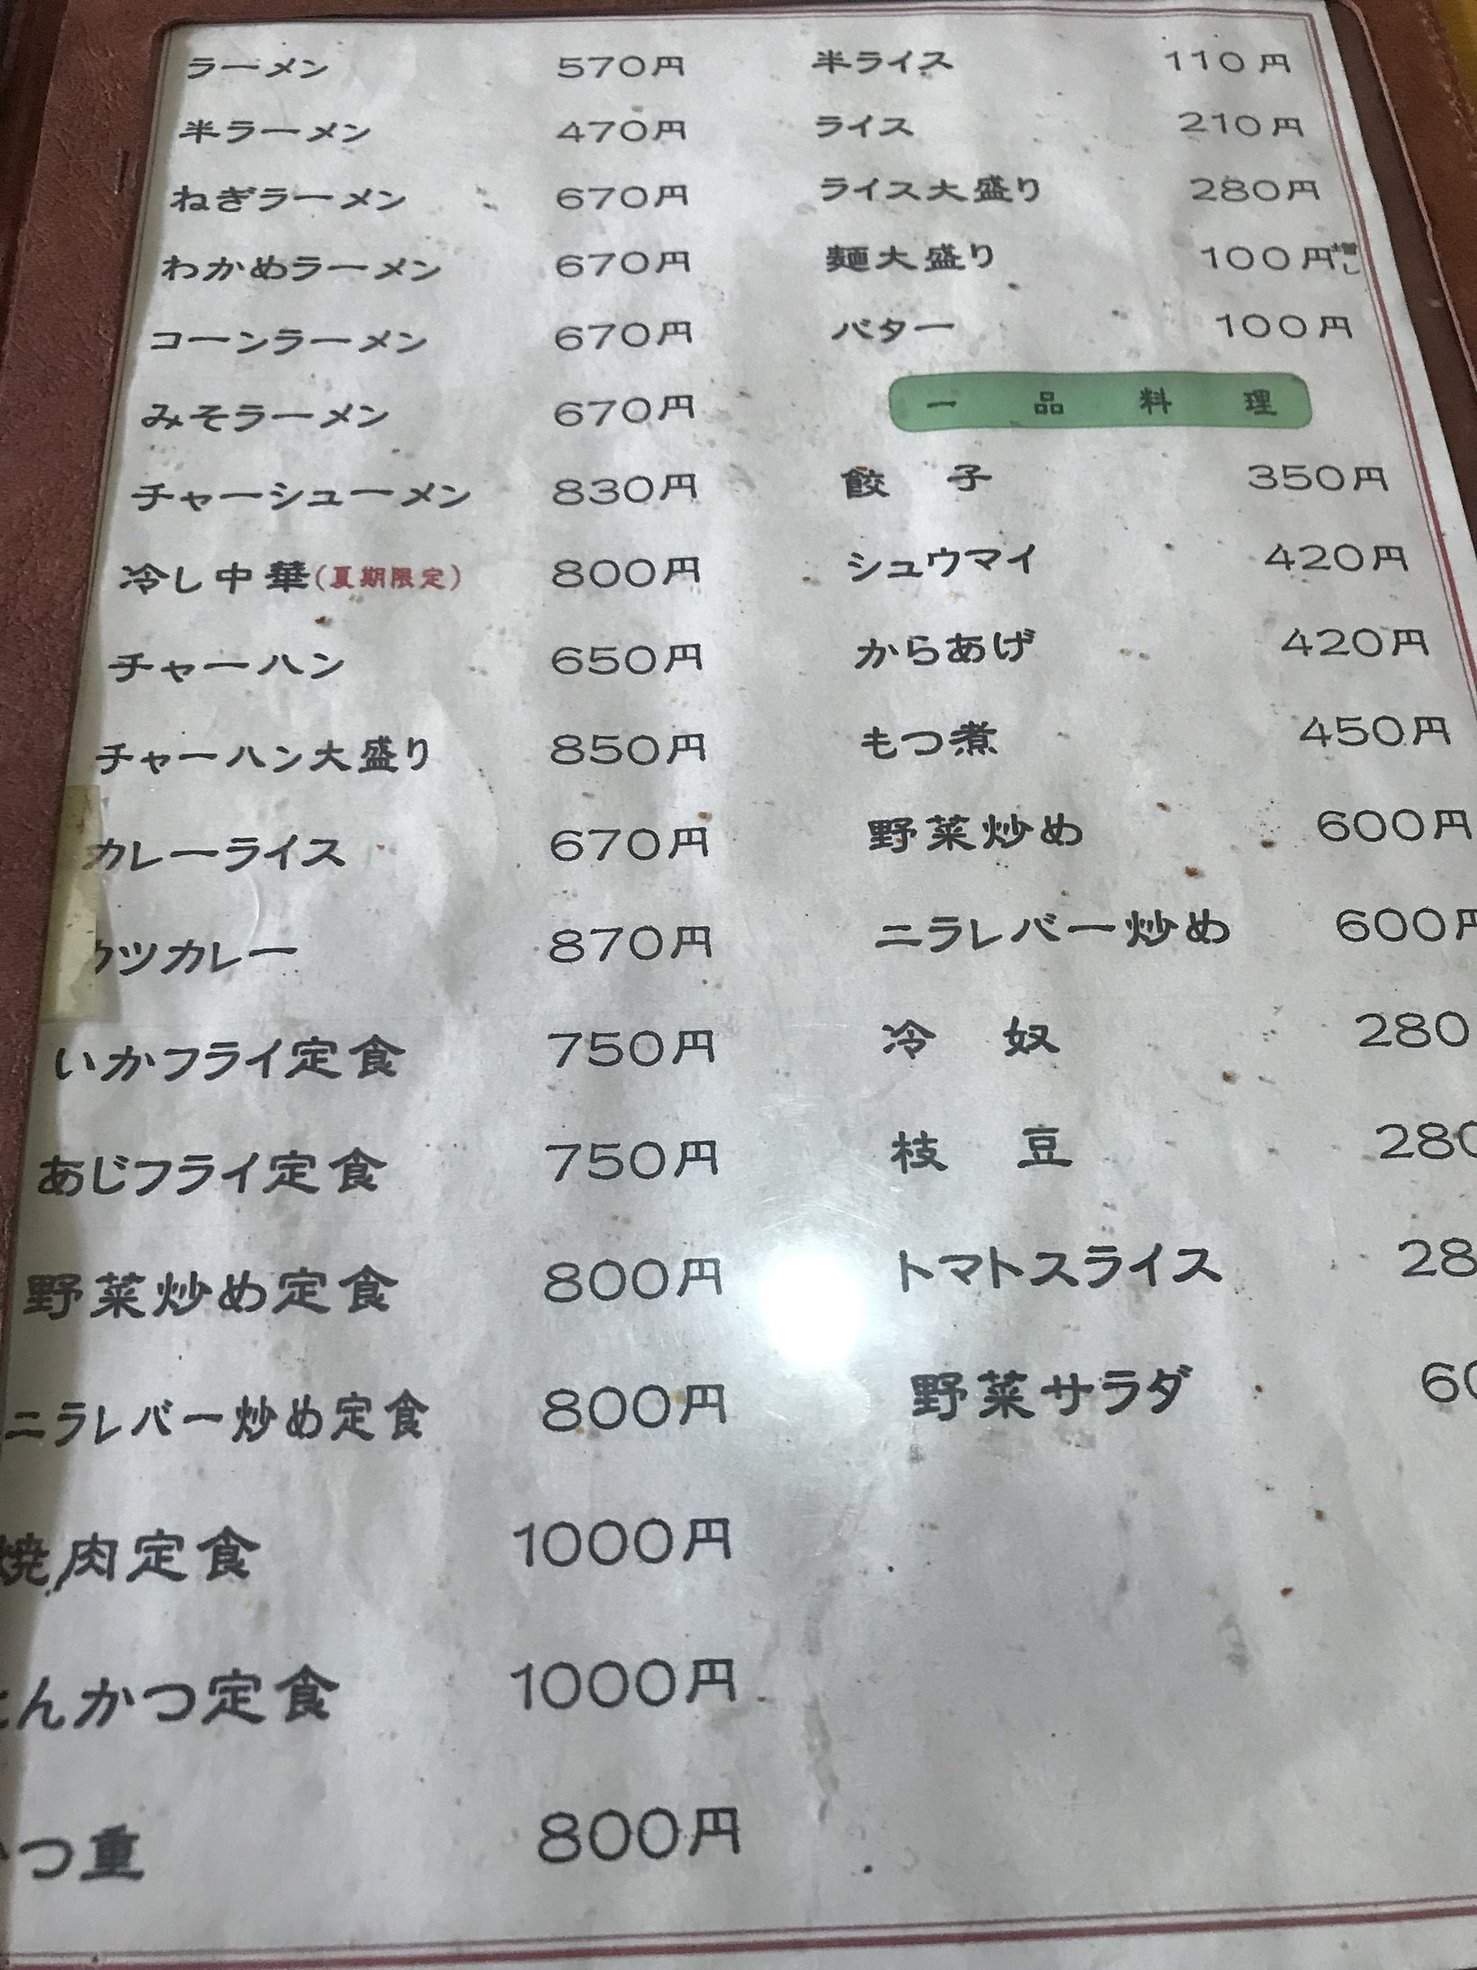 ラーメン 570円
半ラーメン 470円
ねぎラーメン 670円
わかめラーメン 670円
コーンラーメン 670円
みそラーメン 670円
チャーシューメン 830円
冷し中華(夏期限定) 800円
チャーハン 650円
チャーハン大盛り 850円
カレーライス 670円
カツカレー 870円
いかフライ定食 750円
あじフライ定食 750円
野菜炒め定食 800円
ニラレバー炒め定食 800円
焼肉定食 1000円
とんかつ定食 1000円
つ重 800円
半ライス 110円
ライス 210円
ライス大盛り 280円
麺大盛り 100円増し
バター 100円
一品料理
餃子 350円
シュウマイ 420円
からあげ 420円
もつ煮 450円
野菜炒め 600円
ニラレバー炒め 600円
冷奴 280
枝豆 280
トマトスライス 28
野菜サラダ 60